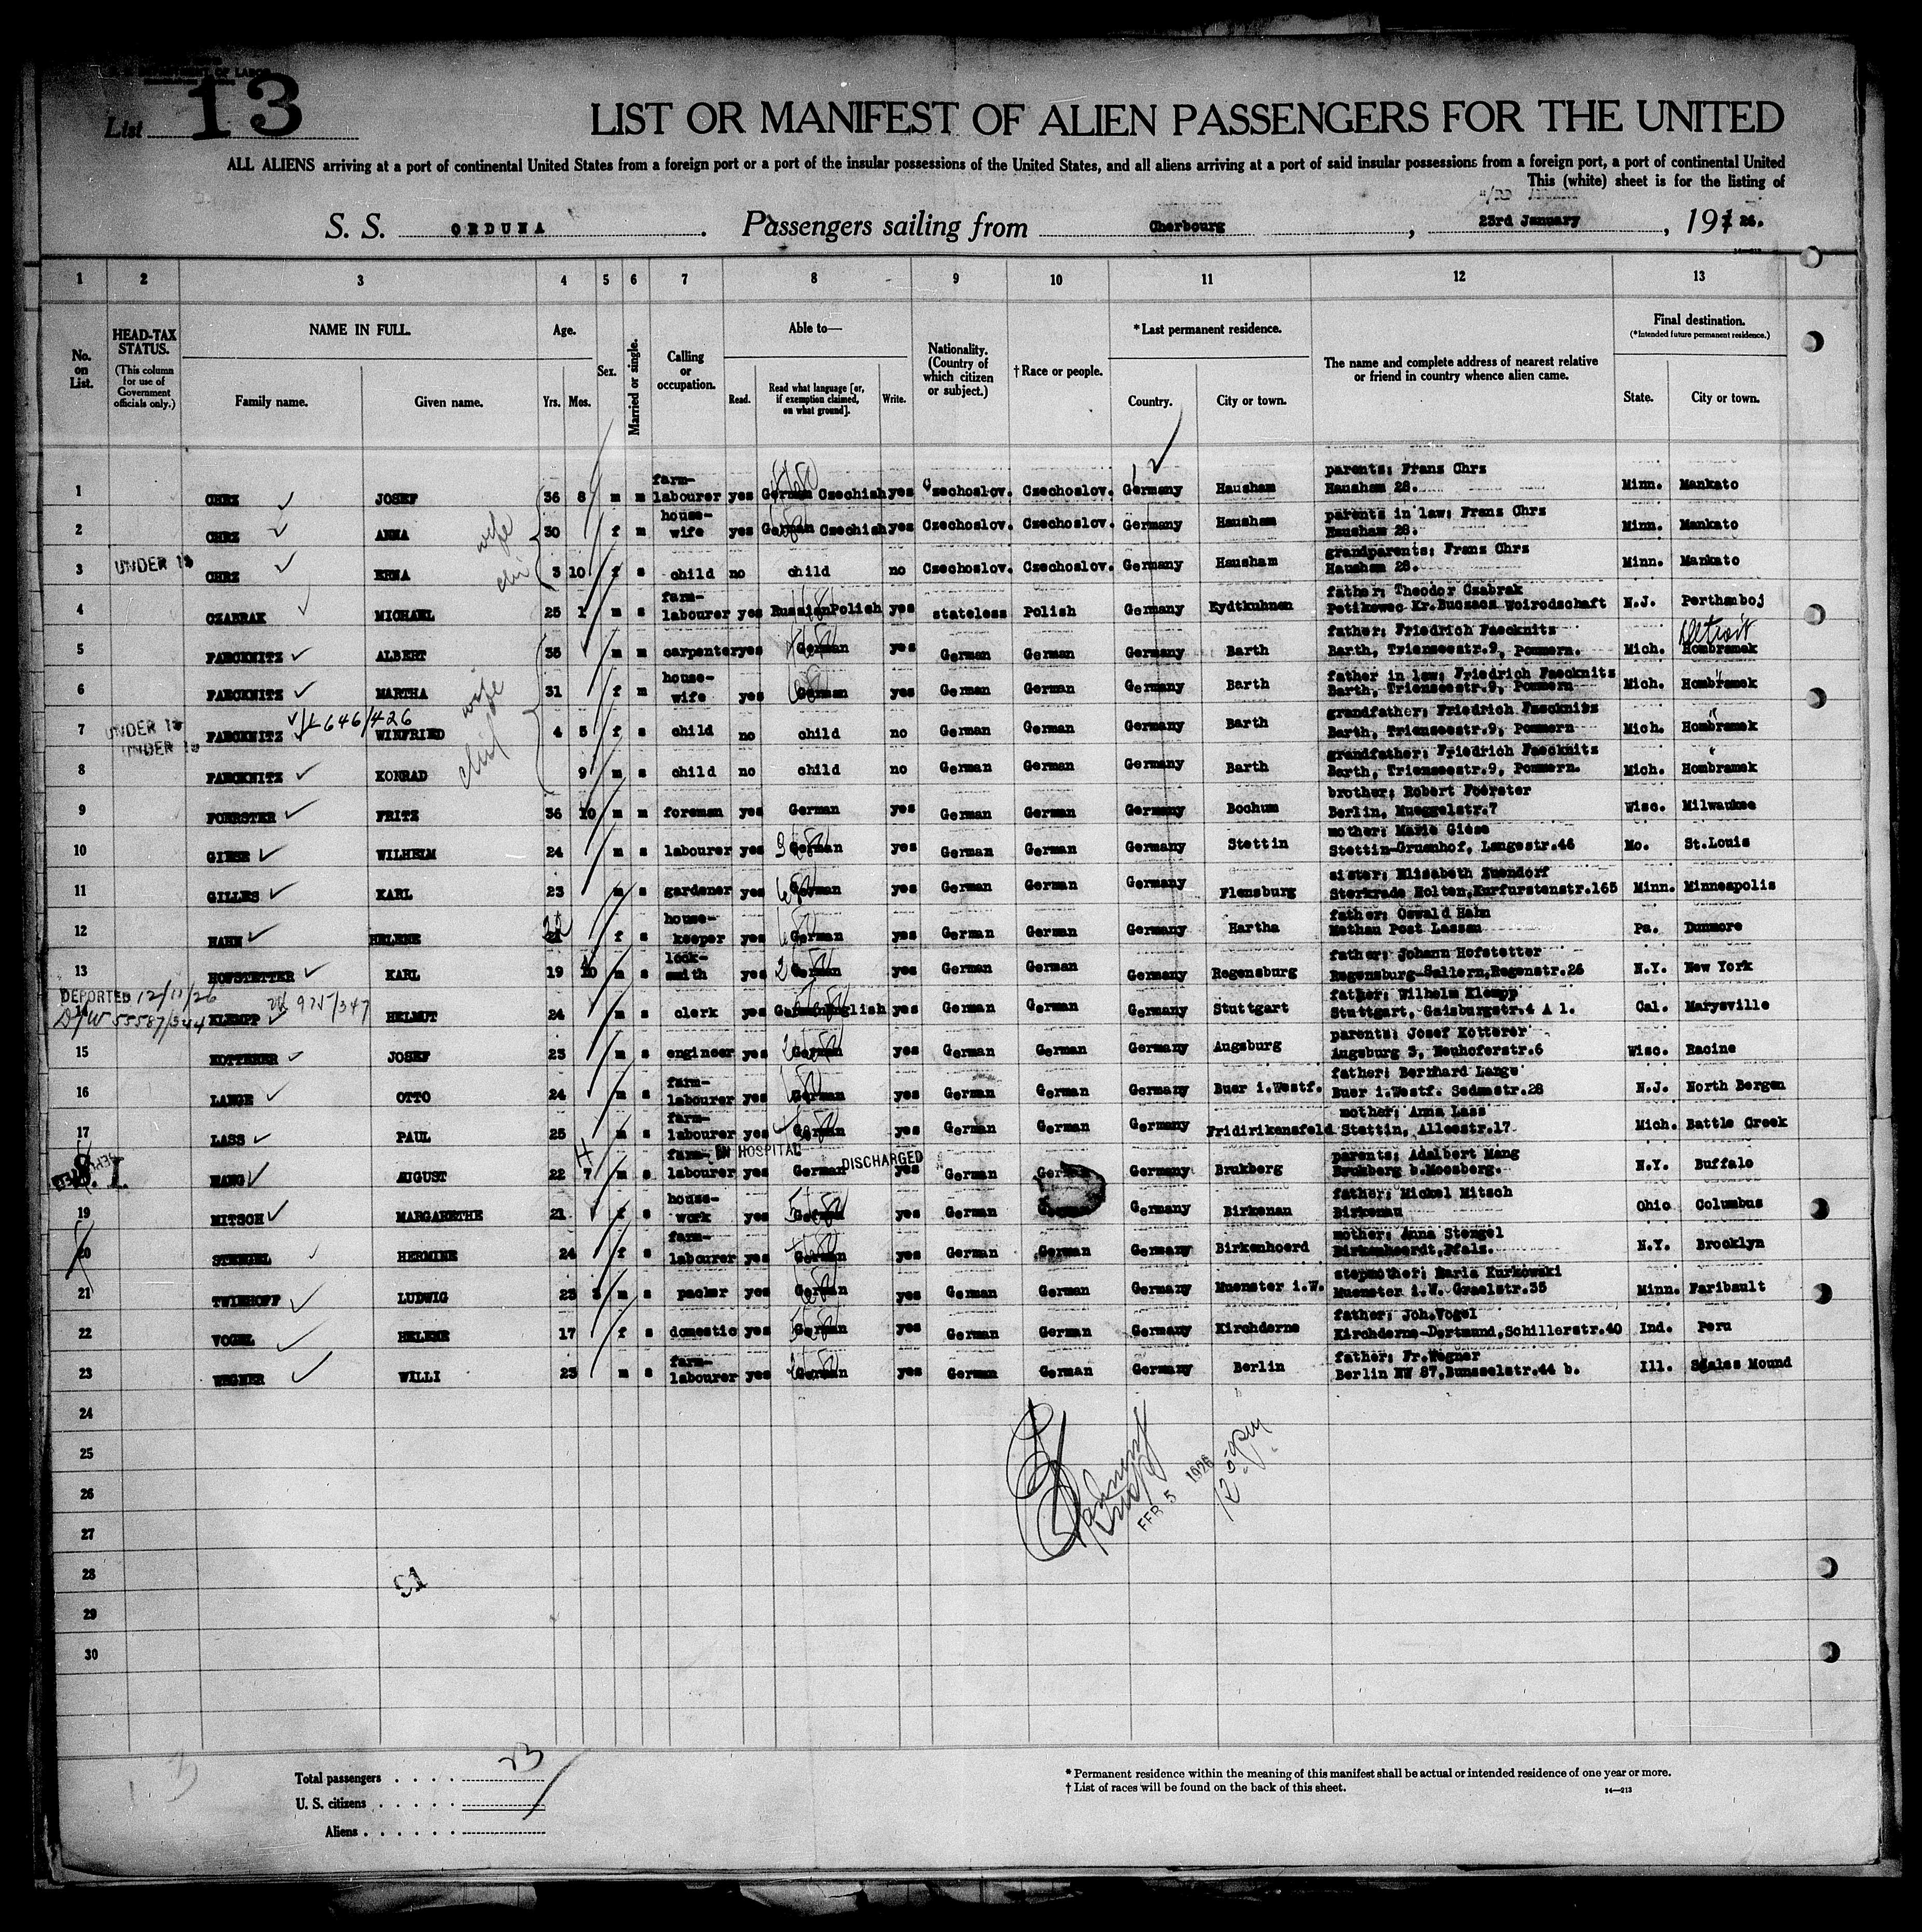 U.S. DEPARTMENT OF LABOR
List 13
LIST OR MANIFEST OF ALIEN PASSENGERS FOR THE UNITED
ALL ALIENS arriving at a port of continental United States from a foreign port or a port of the insular possessions of the United States, and all aliens arriving at a port of said insular possessions from a foreign port, a port of continental United
This (white) sheet is for the listing of
S. S. ORDUNA. Passengers sailing from Cherbourg, 23rd January, 191 26.
1 2 3 4 5 6 7 8 9 10 11 12 13
No. on List. HEAD-TAX STATUS. (This column for use of Government officials only.) NAME IN FULL. Family name. Given name. Age. Yrs. Mos. Sex. Married or single. Calling or occupation. Able to— Read. Read what language [or, if exemption claimed, on what ground]. Write. Nationality. (Country of which citizen or subject.) † Race or people. *Last permanent residence. Country. City or town. The name and complete address of nearest relative or friend in country whence alien came. Final destination. (*Intended future permanent residence.) State. City or town.
1 CHRZ JOSEF 36 8 m m farm-labourer yes German Czechish yes Czechoslov. Czechoslov. Germany Hausham parents: Franz Chrz Hausham 28. Minn. Mankato
2 CHRZ ANNA wife 30 f m house-wife yes German Czechish yes Czechoslov. Czechoslov. Germany Hausham parents in law: Franz Chrz Hausham 28. Minn. Mankato
3 UNDER 16 CHRZ ERNA chi 3 10 f s child no child no Czechoslov. Czechoslov. Germany Hausham grandparents: Franz Chrz Hausham 28. Minn. Mankato
4 CZABRAK MICHAEL 25 1 m s farm-labourer yes Russian Polish yes stateless Polish Germany Eydtkuhnen father: Theodor Czabrak Petikowec Kr. Buczacz Woirodschaft N.J. Perthamboj
5 FAECKNITZ ALBERT 35 m m carpenter yes German yes German German Germany Barth father: Friedrich Faecknitz Barth, Trienseestr.9, Pommern. Mich. Hombramek Detroit
6 FAECKNITZ MARTHA wife 31 f m house-wife yes German yes German German Germany Barth father in law: Friedrich Faecknitz Barth, Trienseestr.9, Pommern Mich. Hombramek
7 UNDER 16 FAECKNITZ WINFRIED 4 5 f s child no child no German German Germany Barth grandfather: Friedrich Faecknitz Barth, Trienseestr.9, Pommern Mich. Hombramek
8 UNDER 16 FAECKNITZ KONRAD 9 m s child no child no German German Germany Barth grandfather: Friedrich Faecknitz Barth, Trienseestr.9, Pommern. Mich. Hombramek
9 FOERSTER FRITZ 36 10 m m foreman yes German yes German German Germany Bochum brother: Robert Foerster Berlin, Mueggelstr.7 Wisc. Milwaukee
10 GIESE WILHELM 24 m s labourer yes German yes German German Germany Stettin mother: Marie Giese Stettin-Gruenhof, Langestr.46 Mo. St.Louis
11 GILLES KARL 23 m s gardener yes German yes German German Germany Flensburg sister: Elisabeth Zuendorf Sterkrade Holten,Kurfurstenstr.165 Minn. Minneapolis
12 HAHN HELENE 22 f s house-keeper yes German yes German German Germany Hartha father: Oswald Hahn Methau Post Lassau Pa. Dunmore
13 HOFSTETTER KARL 19 10 m s lock-smith yes German yes German German Germany Regensburg father: Johann Hofstetter Regensburg-Sallern,Regenstr.26 N.Y. New York
DEPORTED 12/11/26
14 KLEMPP HELMUT 24 m s clerk yes German English yes German German Germany Stuttgart father: Wilhelm Klempp Stuttgart, Gaisburgstr.4 A 1. Cal. Marysville
15 KOTTERER JOSEF 23 m s engineer yes German yes German German Germany Augsburg parents: Josef Kotterer Augsburg 3, Neuhoferstr.6 Wisc. Racine
16 LANGE OTTO 24 m s farm-labourer yes German yes German German Germany Buer i.Westf. father: Bernhard Lange Buer i.Westf. Sedanstr.28 N.J. North Bergen
17 LASS PAUL 25 m s farm-labourer yes German yes German German Germany Fridirikensfeld mother: Anna Lass Stettin, Alleestr.17 Mich. Battle Creek
IN HOSPITAL DISCHARGED
S. I. MANG AUGUST 22 7 m s farm-labourer yes German yes German German Germany Brukberg parents: Adalbert Mang Brukberg b.Moosberg. N.Y. Buffalo
19 MITSCH MARGARETHE 21 f s house-work yes German yes German German Germany Birkenau father: Mickel Mitsch Birkenau Ohio Columbus
20 STENGEL HERMINE 24 f s farm-labourer yes German yes German German Germany Birkenhoerd mother: Anna Stengel Birkenhoerdt,Pfalz. N.Y. Brooklyn
21 TWIEHOFF LUDWIG 23 m s packer yes German yes German German Germany Muenster i.W. stepmother: Maria Kurkowski Muenster i.W. Graelstr.35 Minn. Faribault
22 VOGEL HELENE 17 f s domestic yes German yes German German Germany Kirchderne father: Joh.Vogel Kirchderne-Dortmund,Schillerstr.40 Ind. Peru
23 WEGNER WILLI 23 m s farm-labourer yes German yes German German Germany Berlin father: Fr.Wegner Berlin NW 87,Bunsselstr.44 b. Ill. Scales Mound
24
25
26 FEB 5 1926
27
28
29
30
Total passengers . . . . 23
U. S. citizens . . . . .
Aliens . . . . . .
* Permanent residence within the meaning of this manifest shall be actual or intended residence of one year or more.
† List of races will be found on the back of this sheet.
14—213